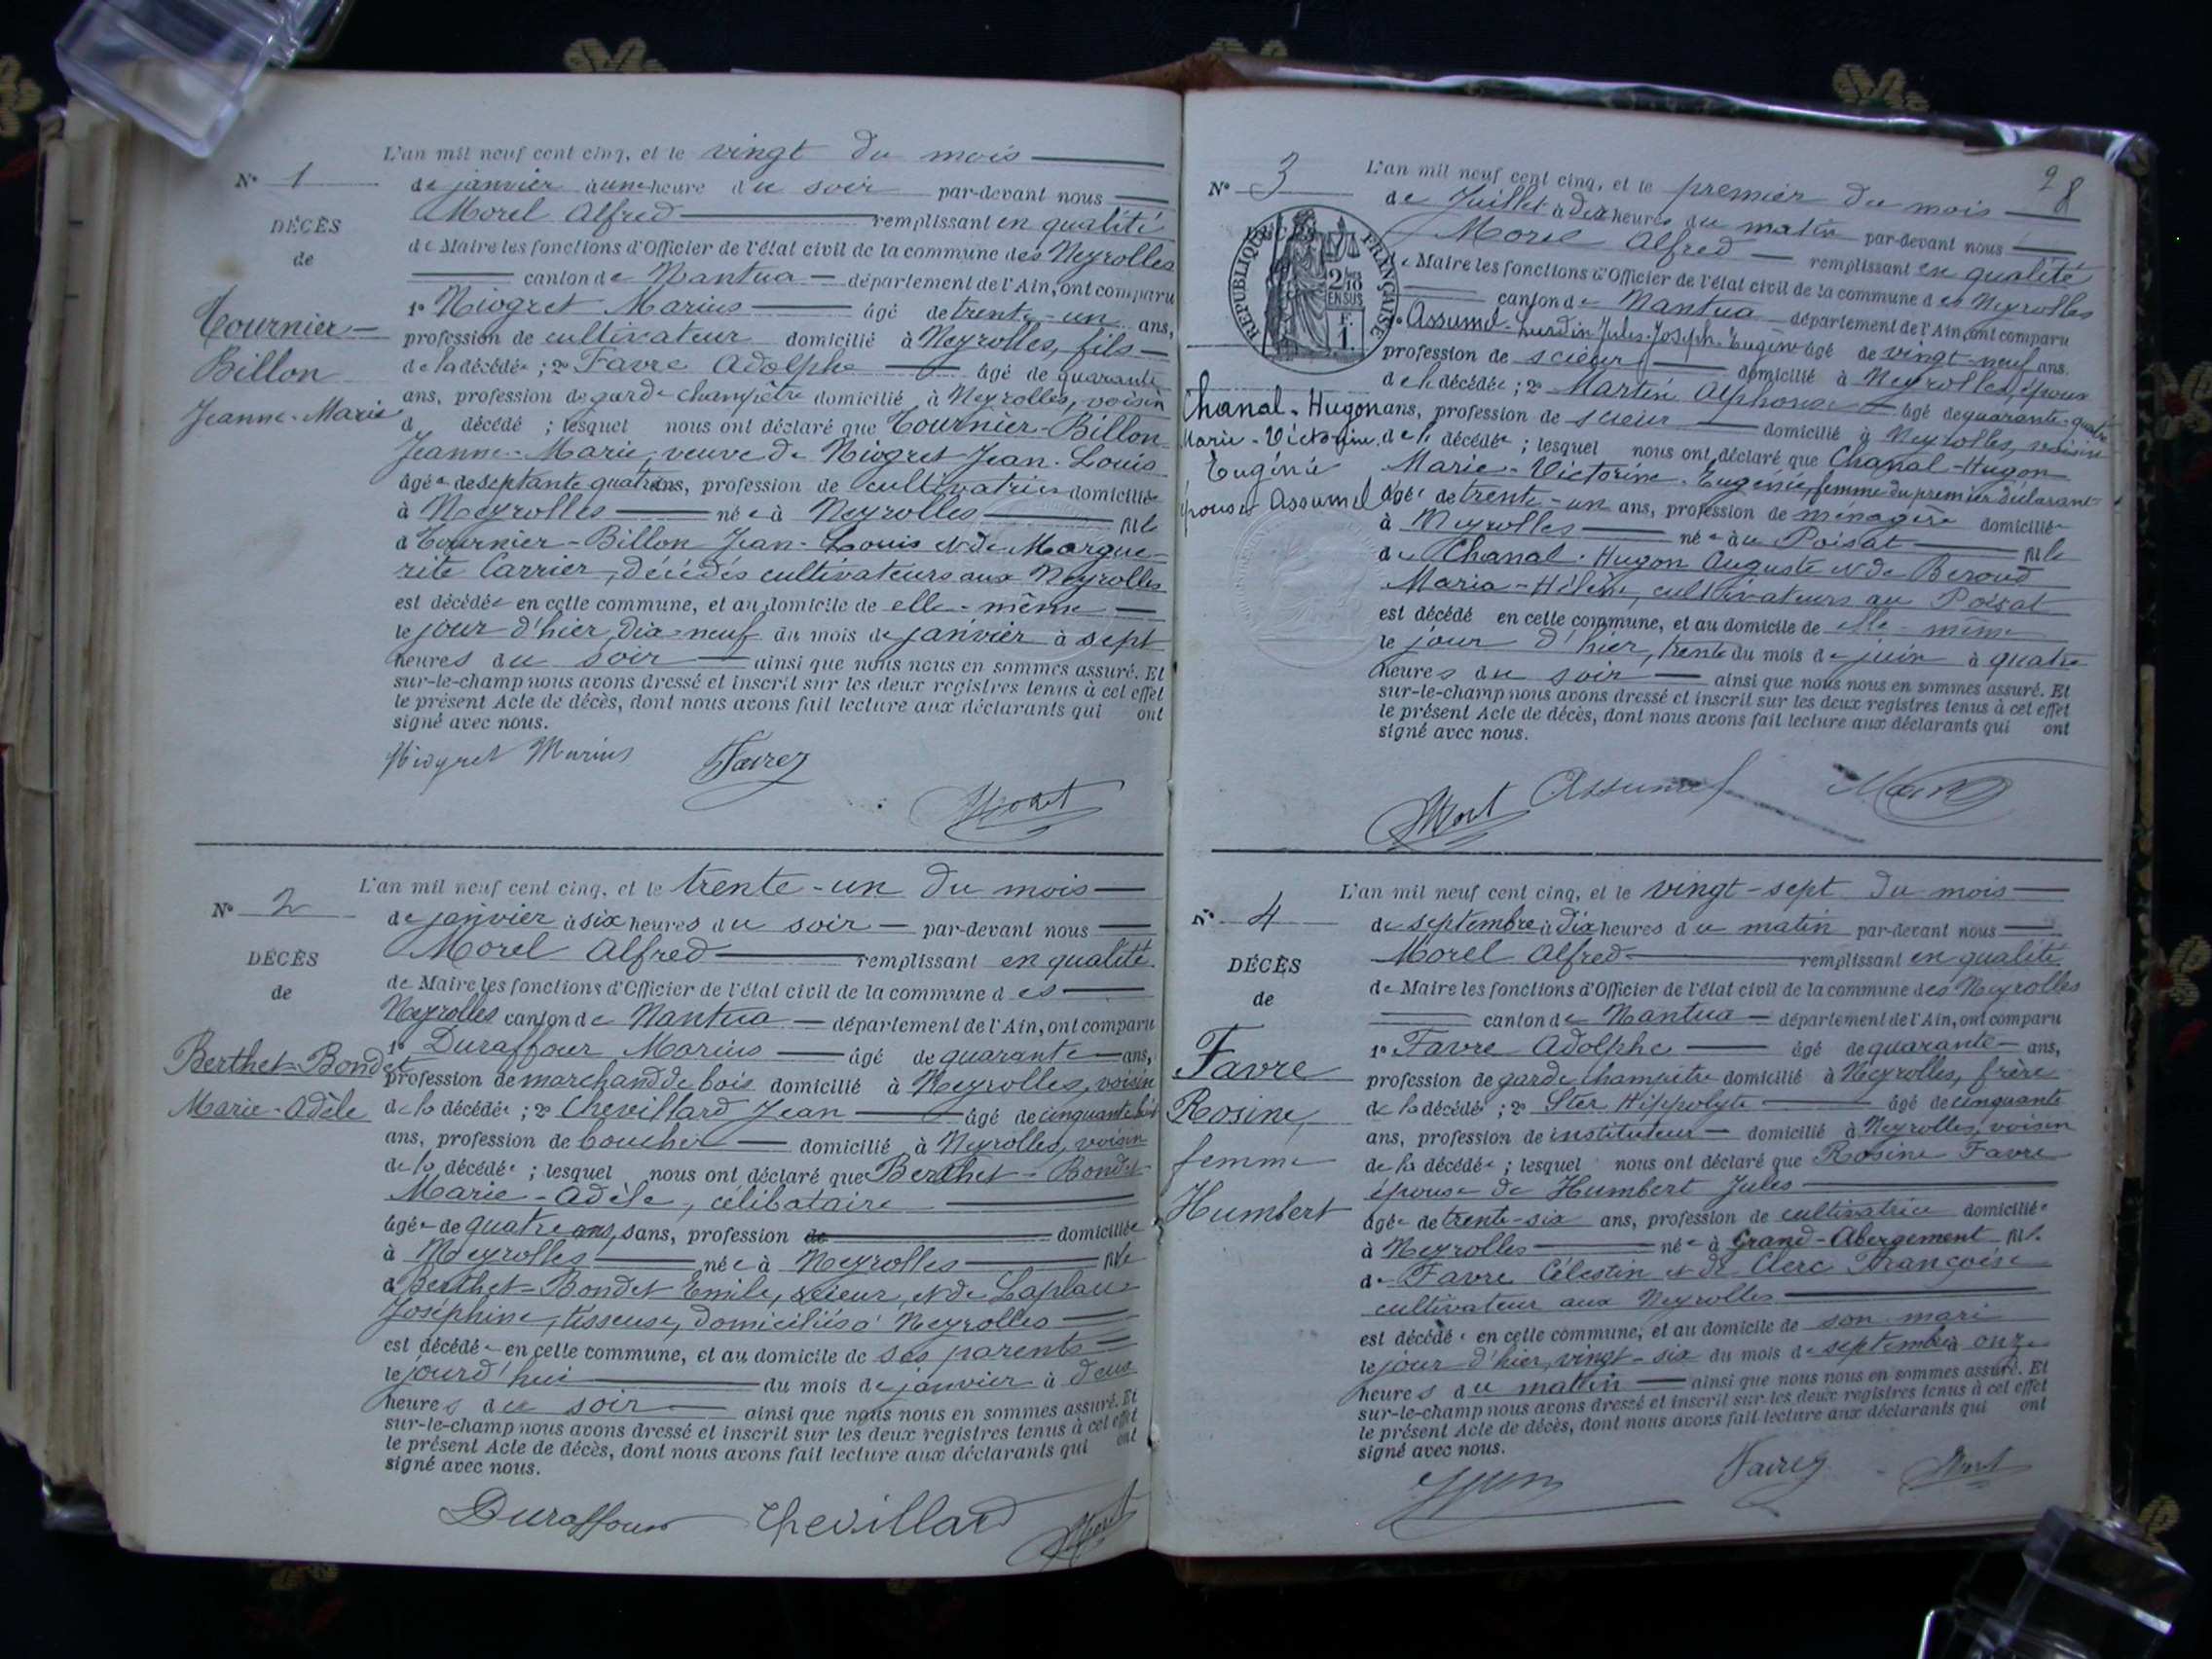 L'an mil neuf cent cinq, et le vingt du mois
N° 1
de janvier à une heure du soir par-devant nous
DÉCÈS
Morel Alfred remplissant en qualité
de
de Maire les fonctions d'Officier de l'état civil de la commune des Neyrolles
canton de Nantua département de l'Ain, ont comparu
1° Niogret Marius âgé de trente-un ans,
Tournier-
profession de cultivateur domicilié à Neyrolles, fils
Billon
de la décédée ; 2° Favre Adolphe âgé de quarante
Jeanne-Marie
ans, profession de garde champêtre domicilié à Neyrolles, voisin
d décédé ; lesquel nous ont déclaré que Tournier-Billon
Jeanne-Marie, veuve de Niogret Jean-Louis
âgée de septante quatre ans, profession de cultivatrice domiciliée
à Neyrolles née à Neyrolles fille
d Tournier-Billon Jean-Louis et de Margue-
rite Carrier, décédés cultivateurs aux Neyrolles
est décédée en cette commune, et au domicile de elle-même
le jour d'hier, dix-neuf du mois de janvier à sept
heures du soir ainsi que nous nous en sommes assuré. Et
sur-le-champ nous avons dressé et inscrit sur les deux registres tenus à cet effet
le présent Acte de décès, dont nous avons fait lecture aux déclarants qui ont
signé avec nous.
Niogret Marius Favre Morel
L'an mil neuf cent cinq, et le trente-un du mois
N° 2
de janvier à six heures du soir par-devant nous
DÉCÈS
Morel Alfred remplissant en qualité
de
de Maire les fonctions d'Officier de l'état civil de la commune des
Neyrolles canton de Nantua département de l'Ain, ont comparu
1° Duraffour Marius âgé de quarante ans,
Berthet-Bondet
profession de marchand de bois domicilié à Neyrolles, voisin
Marie-Adèle
de la décédée ; 2° Chevillard Jean âgé de cinquante
ans, profession de boucher domicilié à Neyrolles, voisin
de la décédée ; lesquel nous ont déclaré que Berthet-Bondet
Marie-Adèle, célibataire
âgée de quatre ans, sans, profession de domiciliée
à Neyrolles née à Neyrolles fille
d Berthet-Bondet Emile, scieur, et de
Joséphine, tisseuse, domiciliés à Neyrolles
est décédée en cette commune, et au domicile de ses parents
le jourd'hui du mois de janvier à deux
heures du soir ainsi que nous nous en sommes assuré. Et
sur-le-champ nous avons dressé et inscrit sur les deux registres tenus à cet effet
le présent Acte de décès, dont nous avons fait lecture aux déclarants qui ont
signé avec nous.
Duraffour Chevillard Morel
28
L'an mil neuf cent cinq, et le premier du mois
N° 3
de Juillet à dix heures du matin par-devant nous
Morel Alfred remplissant en qualité
RÉPUBLIQUE FRANÇAISE
de Maire les fonctions d'Officier de l'état civil de la commune des Neyrolles
canton de Nantua département de l'Ain, ont comparu
1° Assumel-Lurdin Jules-Joseph-Eugène âgé de vingt-neuf ans.
profession de scieur domicilié à Neyrolles, époux
de la décédée ; 2° Martin Alphonse âgé de quarante-quatre
Chanal-Hugon
ans, profession de scieur domicilié à Neyrolles, voisin
Marie-Victorine
de la décédée ; lesquel nous ont déclaré que Chanal-Hugon
Eugénie
Marie-Victorine-Eugénie, femme du premier déclarant
épouse Assumel
âgée de trente-un ans, profession de ménagère domiciliée
à Neyrolles née au Poisat fille
de Chanal-Hugon Auguste et de Beroud
Maria-Hélène, cultivateurs au Poisat
est décédé en cette commune, et au domicile de elle-même
le jour d'hier, trente du mois de juin à quatre
heures du soir ainsi que nous nous en sommes assuré. Et
sur-le-champ nous avons dressé et inscrit sur les deux registres tenus à cet effet
le présent Acte de décès, dont nous avons fait lecture aux déclarants qui ont
signé avec nous.
Morel Assumel
L'an mil neuf cent cinq, et le vingt-sept du mois
N° 4
de septembre à dix heures du matin par-devant nous
DÉCÈS
Morel Alfred remplissant en qualité
de
de Maire les fonctions d'Officier de l'état civil de la commune des Neyrolles
canton de Nantua département de l'Ain, ont comparu
Favre
1° Favre Adolphe âgé de quarante ans,
profession de garde champêtre domicilié à Neyrolles, frère
Rosine,
de la décédée ; 2° Ster Hippolyte âgé de cinquante
ans, profession de instituteur domicilié à Neyrolles, voisin
femme
de la décédée ; lesquel nous ont déclaré que Rosine Favre
épouse de Humbert Jules
Humbert
âgée de trente-six ans, profession de cultivatrice domiciliée
à Neyrolles née à Grand-Abergement fille
de Favre Célestin et de Clerc Françoise
cultivateur aux Neyrolles
est décédée en cette commune, et au domicile de son mari
le jour d'hier, vingt-six du mois de septembre à onze
heures du matin ainsi que nous nous en sommes assuré. Et
sur-le-champ nous avons dressé et inscrit sur les deux registres tenus à cet effet
le présent Acte de décès, dont nous avons fait lecture aux déclarants qui ont
signé avec nous.
Favre Morel